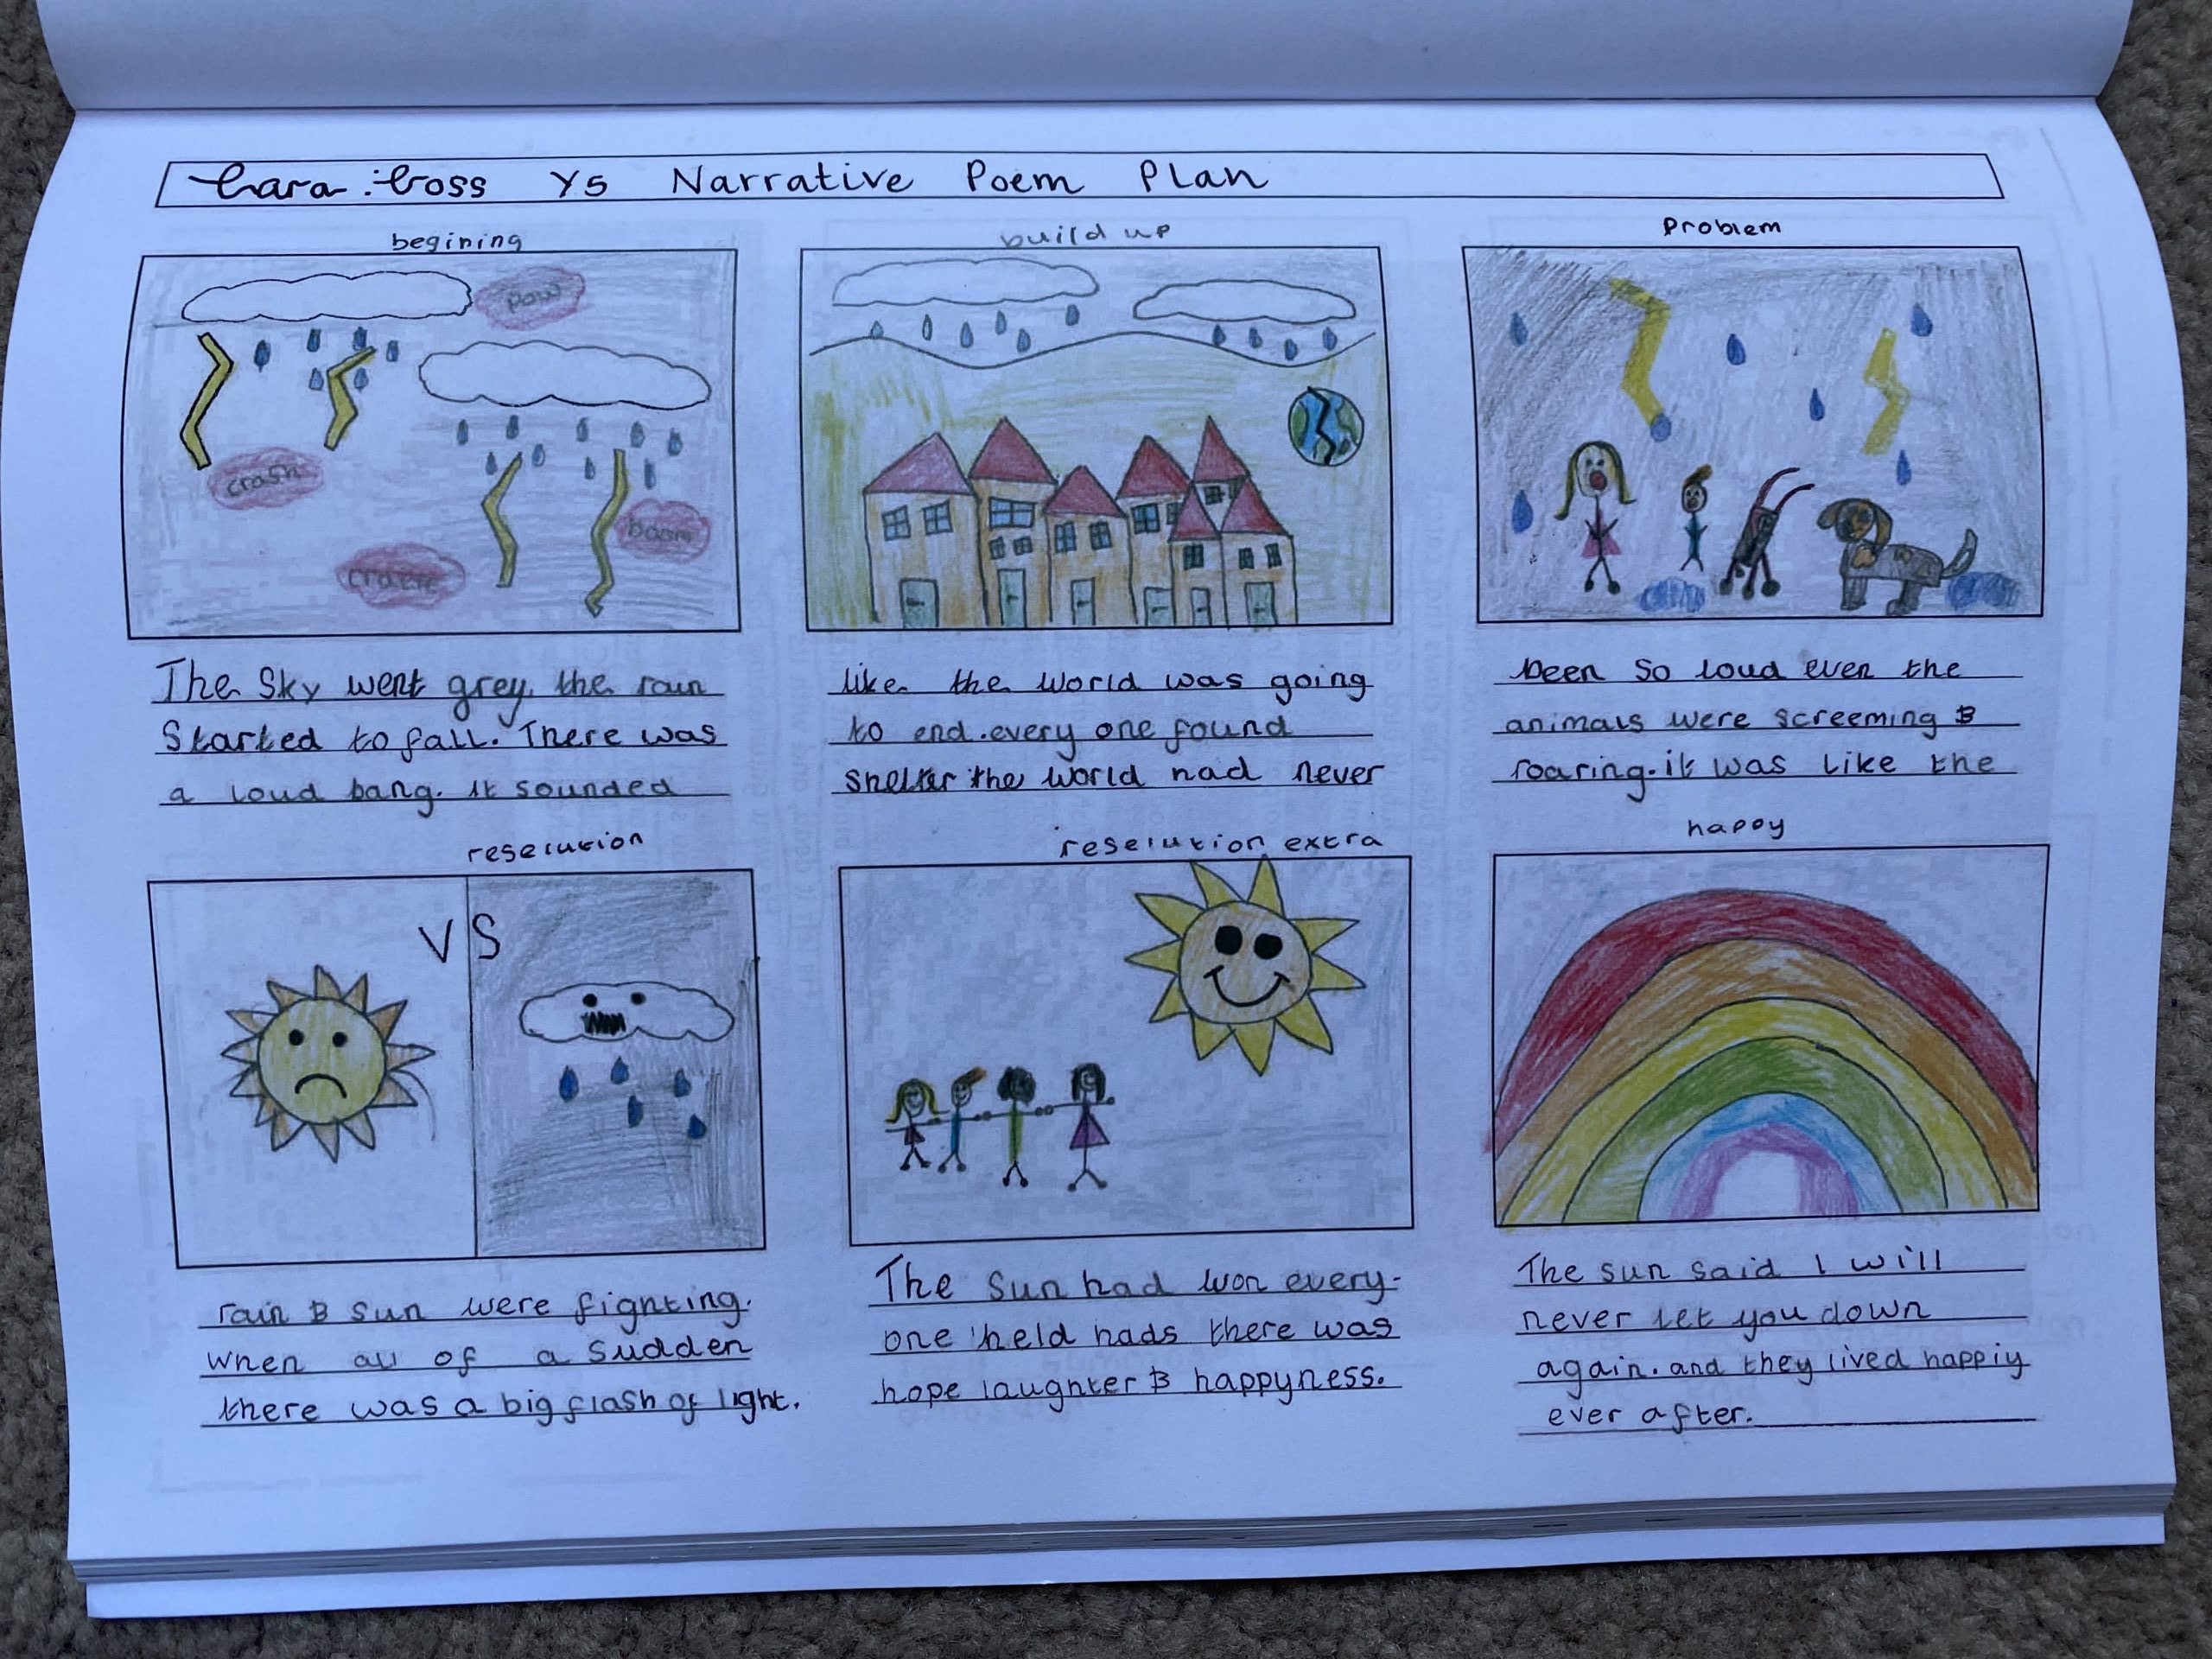 Cara Coss Y5 Narrative Poem Plan
begining
pow
crash
boom
crack
The Sky went grey. the rain
Started to fall. There was
a loud bang. it sounded
build up
like the world was going
to end. every one found
shelter the world had never
Problem
been so loud even the
animals were screeming &
roaring. it was like the
reselution
VS
rain & sun were fighting.
when all of a sudden
there was a big flash of light.
reselution extra
The Sun had won every-
one held hads there was
hope laughter & happyness.
happy
The sun said I will
never let you down
again. and they lived happiy
ever after.